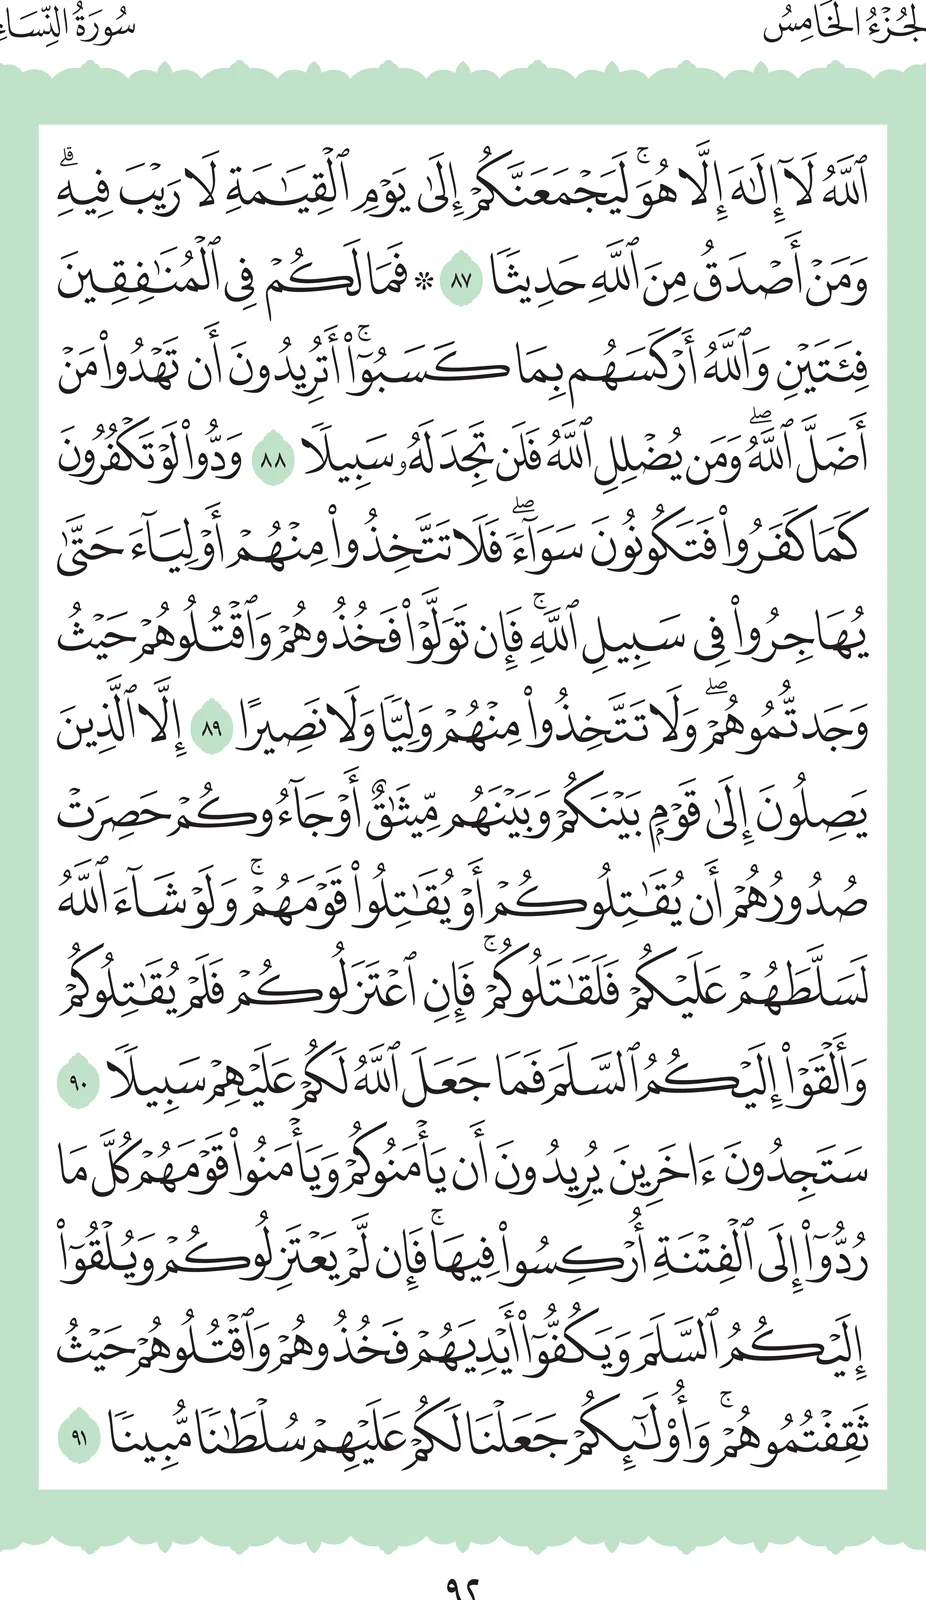 الجُزْءُ الخَامِسُ
سُورَةُ النِّسَاءِ
ٱللَّهُ لَآ إِلَٰهَ إِلَّا هُوَۚ لَيَجْمَعَنَّكُمْ إِلَىٰ يَوْمِ ٱلْقِيَٰمَةِ لَا رَيْبَ فِيهِۗ
وَمَنْ أَصْدَقُ مِنَ ٱللَّهِ حَدِيثًا ٨٧ * فَمَا لَكُمْ فِي ٱلْمُنَٰفِقِينَ
فِئَتَيْنِ وَٱللَّهُ أَرْكَسَهُم بِمَا كَسَبُوٓاْۚ أَتُرِيدُونَ أَن تَهْدُواْ مَنْ
أَضَلَّ ٱللَّهُۖ وَمَن يُضْلِلِ ٱللَّهُ فَلَن تَجِدَ لَهُۥ سَبِيلًا ٨٨ وَدُّواْ لَوْ تَكْفُرُونَ
كَمَا كَفَرُواْ فَتَكُونُونَ سَوَآءًۖ فَلَا تَتَّخِذُواْ مِنْهُمْ أَوْلِيَآءَ حَتَّىٰ
يُهَاجِرُواْ فِي سَبِيلِ ٱللَّهِۚ فَإِن تَوَلَّوْاْ فَخُذُوهُمْ وَٱقْتُلُوهُمْ حَيْثُ
وَجَدتُّمُوهُمْۖ وَلَا تَتَّخِذُواْ مِنْهُمْ وَلِيًّا وَلَا نَصِيرًا ٨٩ إِلَّا ٱلَّذِينَ
يَصِلُونَ إِلَىٰ قَوْمٍۭ بَيْنَكُمْ وَبَيْنَهُم مِّيثَٰقٌ أَوْ جَآءُوكُمْ حَصِرَتْ
صُدُورُهُمْ أَن يُقَٰتِلُوكُمْ أَوْ يُقَٰتِلُواْ قَوْمَهُمْۚ وَلَوْ شَآءَ ٱللَّهُ
لَسَلَّطَهُمْ عَلَيْكُمْ فَلَقَٰتَلُوكُمْۚ فَإِنِ ٱعْتَزَلُوكُمْ فَلَمْ يُقَٰتِلُوكُمْ
وَأَلْقَوْاْ إِلَيْكُمُ ٱلسَّلَمَ فَمَا جَعَلَ ٱللَّهُ لَكُمْ عَلَيْهِمْ سَبِيلًا ٩٠
سَتَجِدُونَ ءَاخَرِينَ يُرِيدُونَ أَن يَأْمَنُوكُمْ وَيَأْمَنُواْ قَوْمَهُمْ كُلَّ مَا
رُدُّوٓاْ إِلَى ٱلْفِتْنَةِ أُرْكِسُواْ فِيهَاۚ فَإِن لَّمْ يَعْتَزِلُوكُمْ وَيُلْقُوٓاْ
إِلَيْكُمُ ٱلسَّلَمَ وَيَكُفُّوٓاْ أَيْدِيَهُمْ فَخُذُوهُمْ وَٱقْتُلُوهُمْ حَيْثُ
ثَقِفْتُمُوهُمْۚ وَأُوْلَٰٓئِكُمْ جَعَلْنَا لَكُمْ عَلَيْهِمْ سُلْطَٰنًا مُّبِينًا ٩١
٩٢